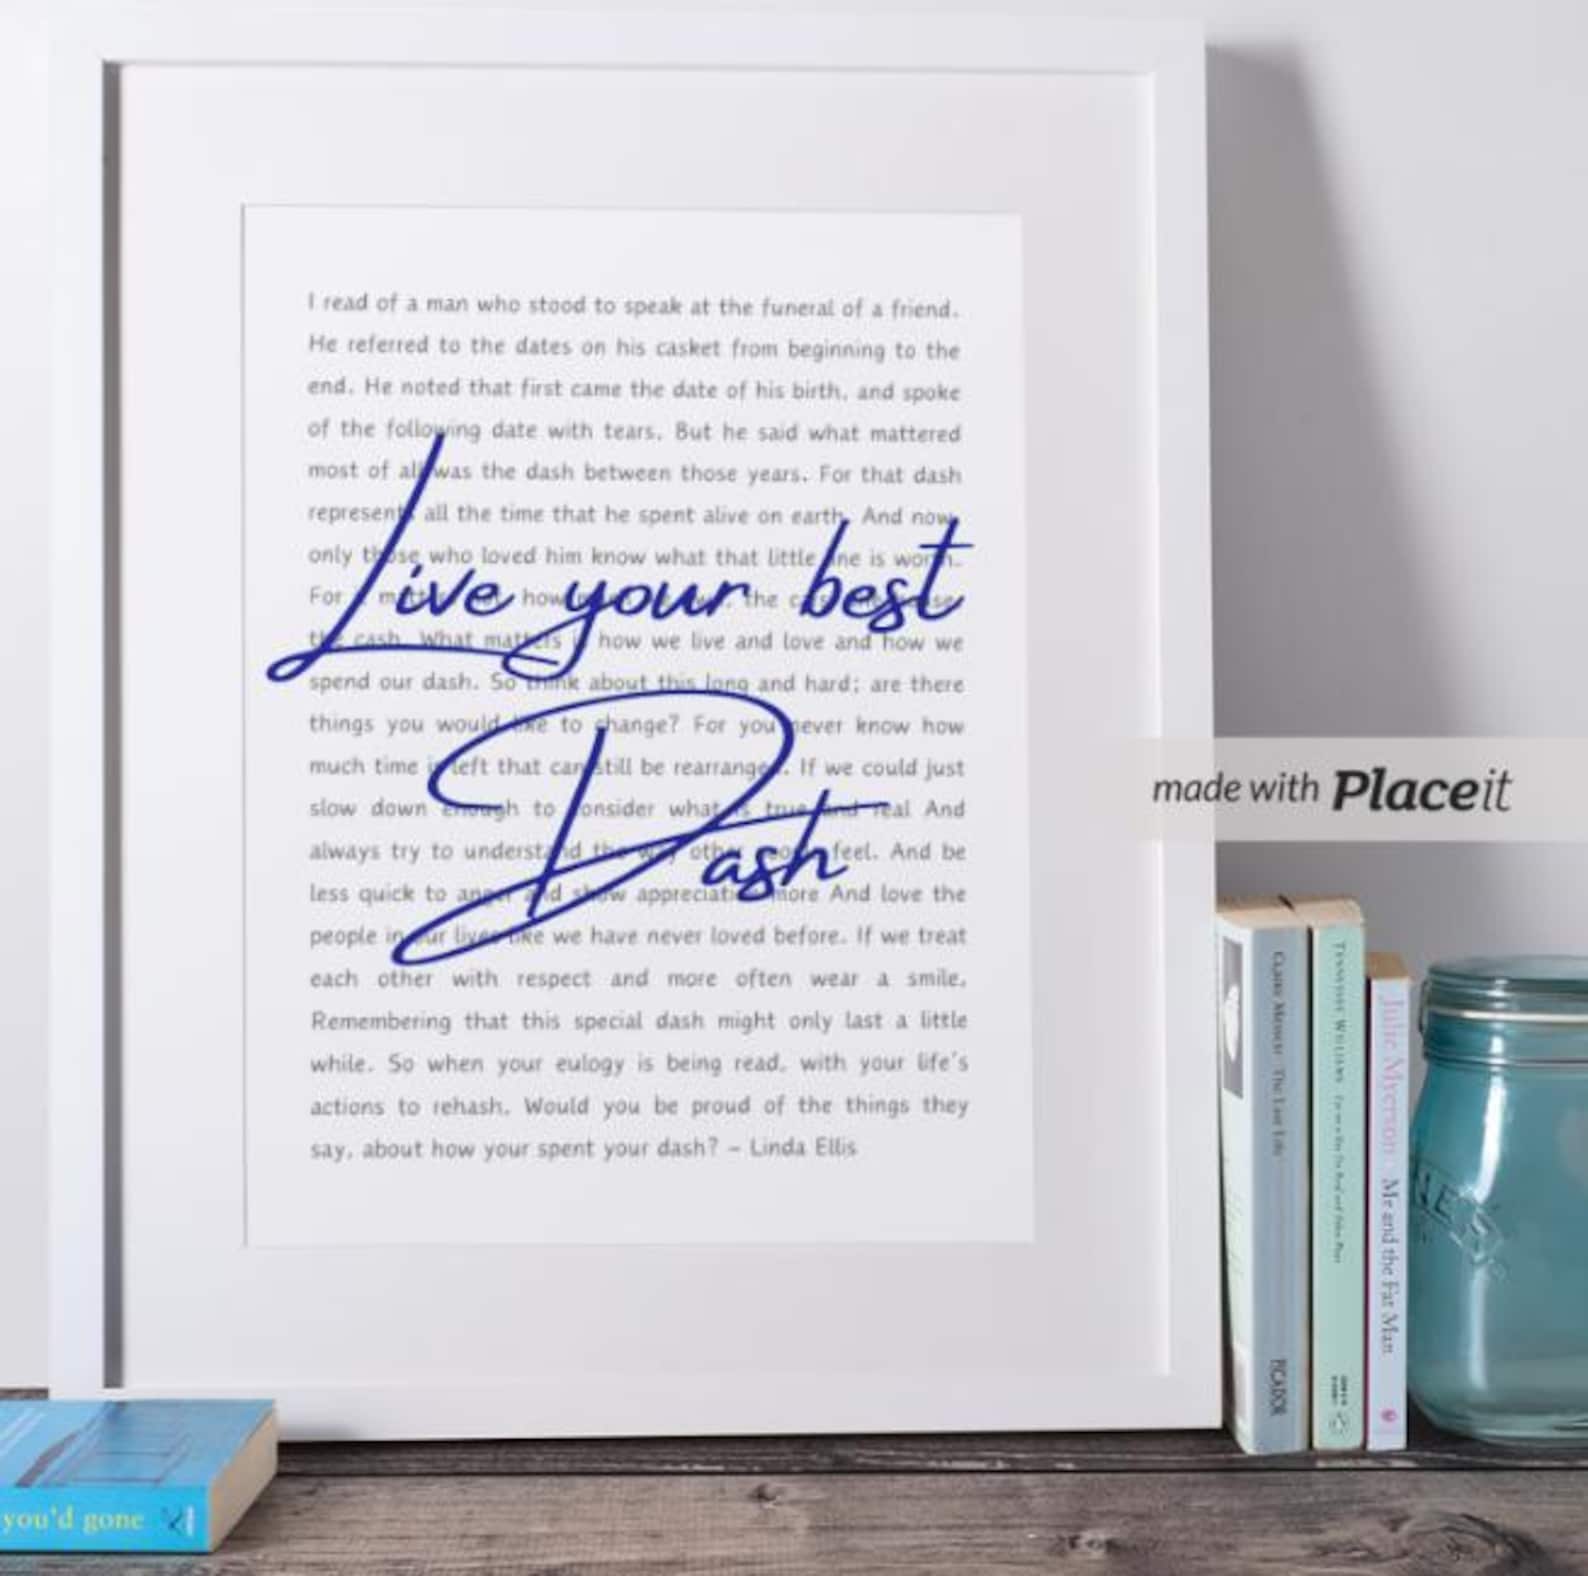 I read of a man who stood to speak at the funeral of a friend.
He referred to the dates on his casket from beginning to the
end. He noted that first came the date of his birth, and spoke
of the following date with tears. But he said what mattered
most of all was the dash between those years. For that dash
represents all the time that he spent alive on earth. And now
only those who loved him know what that little line is worth.
For it matters not, how the
the cash. What matters is how we live and love and how we
spend our dash. So think about this long and hard; are there
things you would like to change? For you never know how
much time is left that can still be rearranged. If we could just
slow down enough to consider what is true and real And
always try to understand the way other people feel. And be
less quick to anger and show appreciation more And love the
people in our lives like we have never loved before. If we treat
each other with respect and more often wear a smile.
Remembering that this special dash might only last a little
while. So when your eulogy is being read, with your life's
actions to rehash. Would you be proud of the things they
say, about how your spent your dash? – Linda Ellis
Live your best
Dash
made with Placeit
Tennessee Williams
Julie Myerson Me and the Fat Man
PICADOR
you'd gone